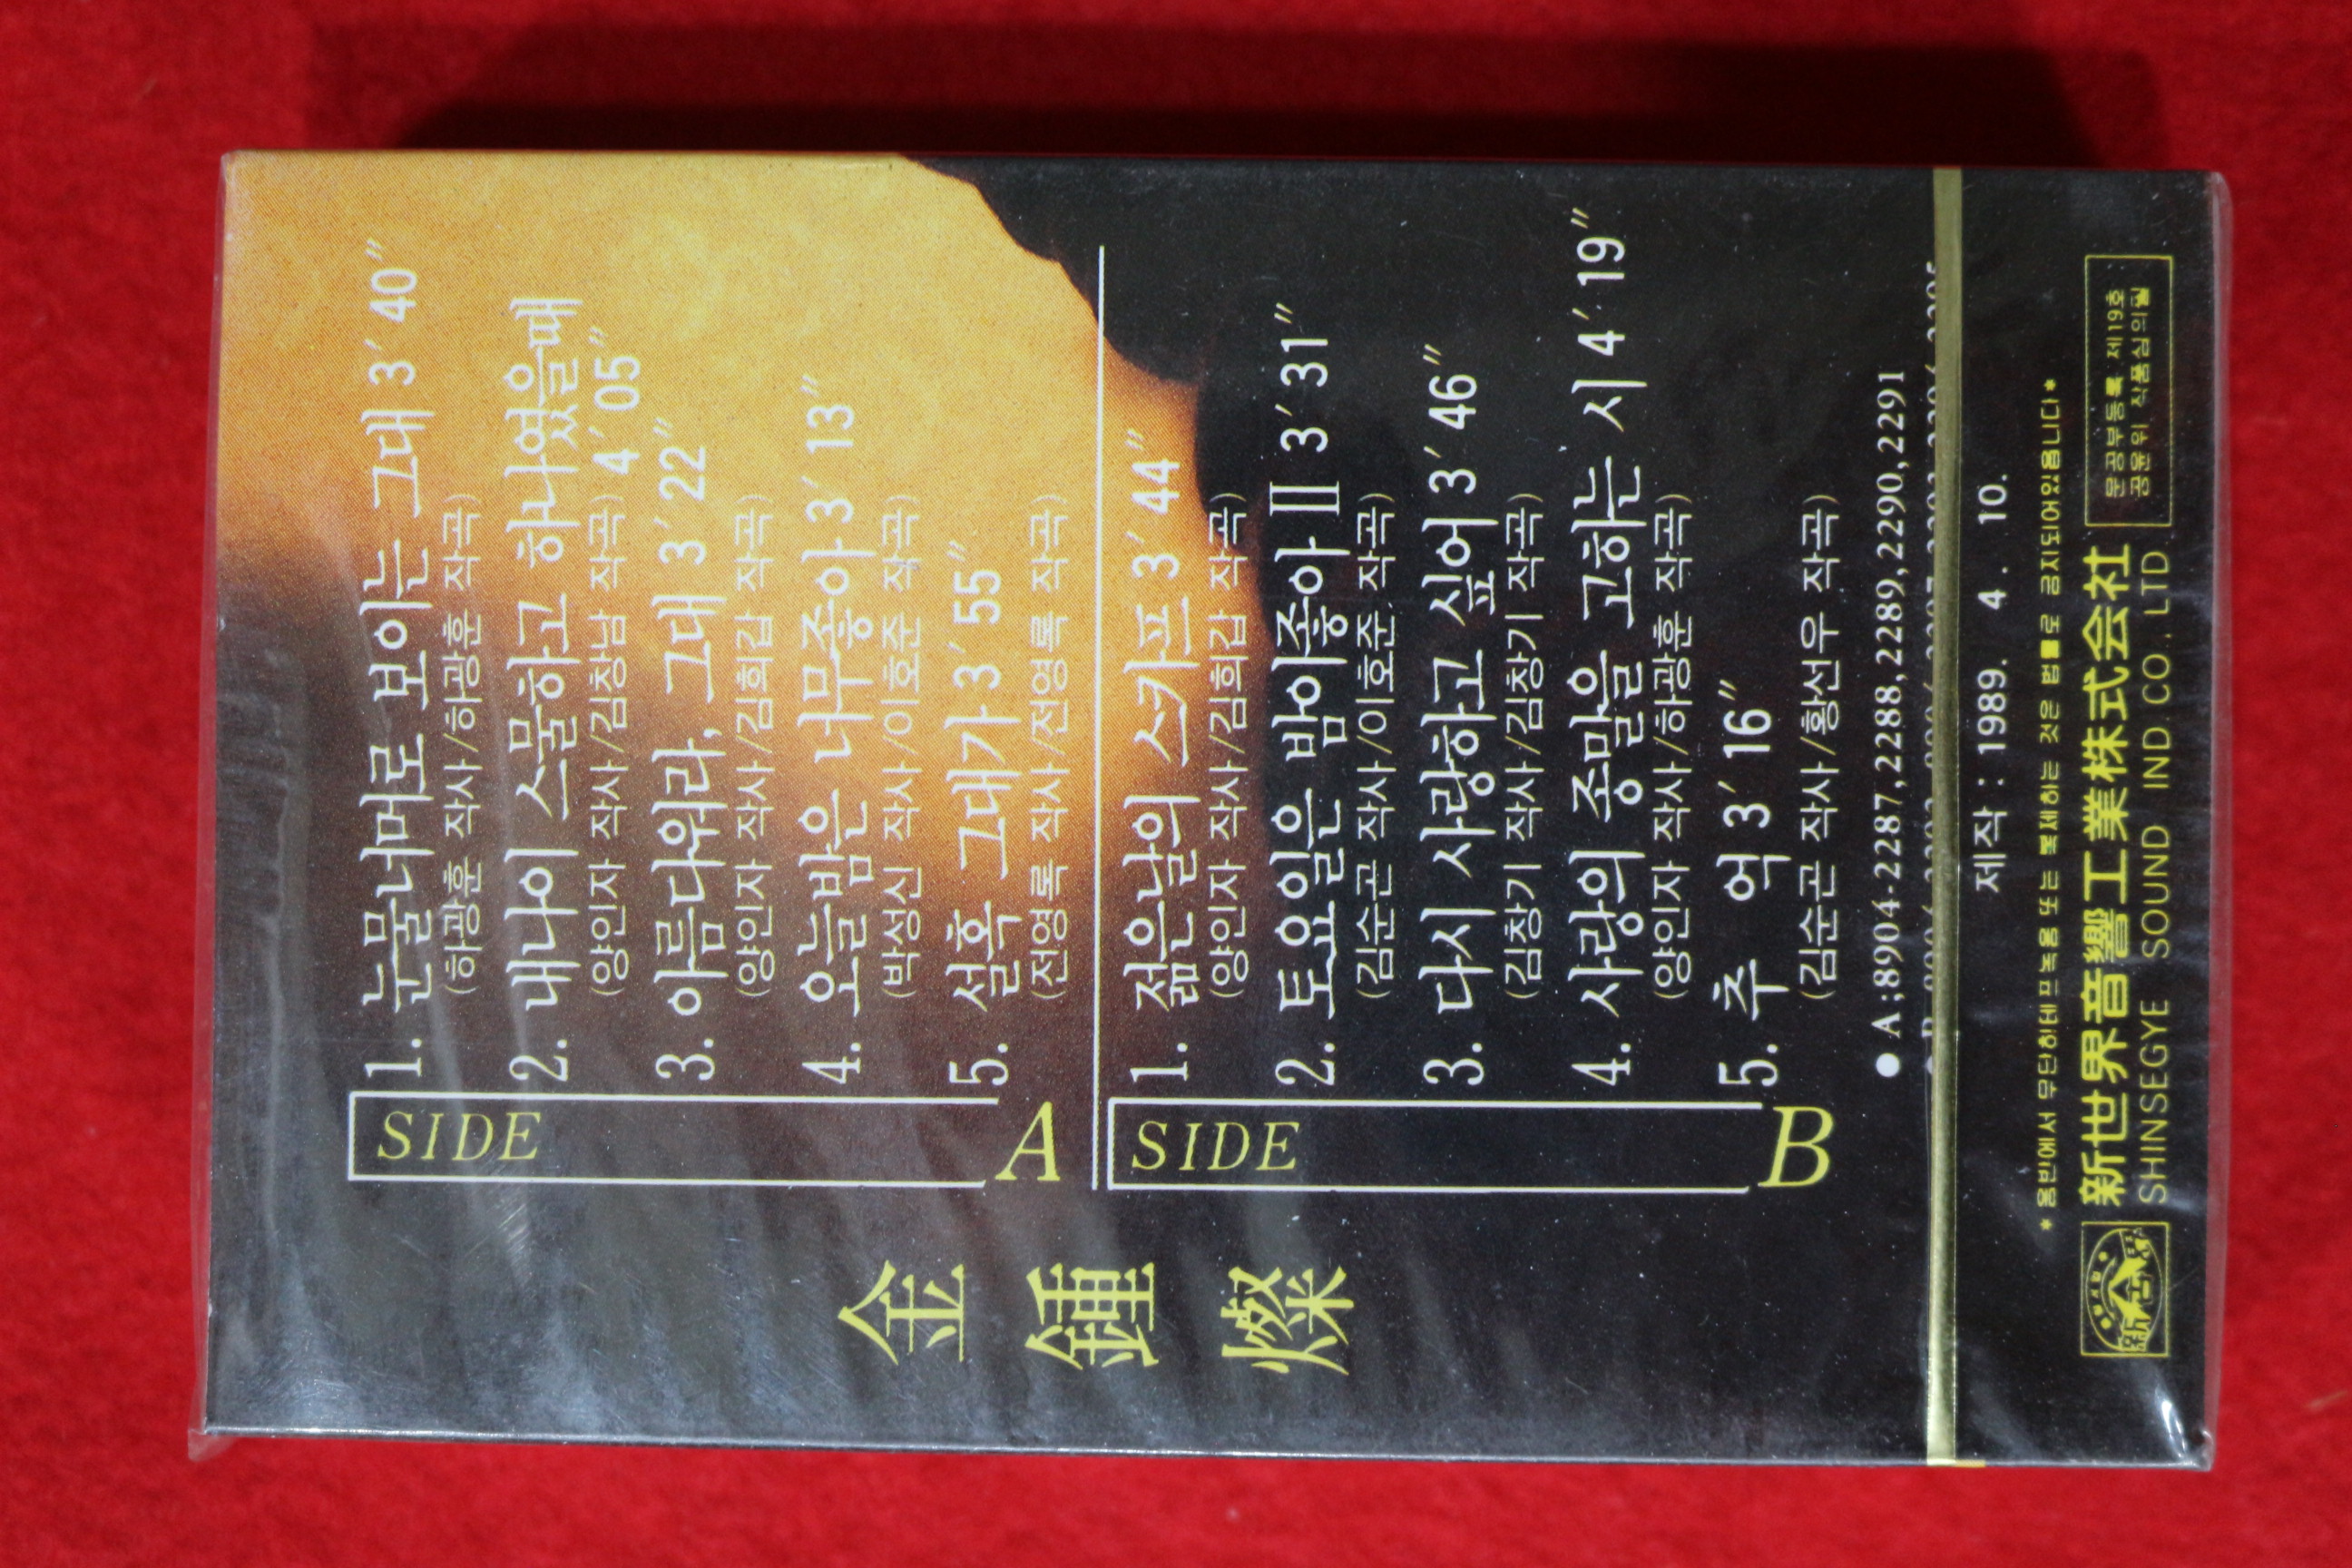 金鍾燦
SIDE A
1. 눈물너머로 보이는 그대 3′ 40″
(하광훈 작사/하광훈 작곡)
2. 내나이 스물하고 하나였을때
(양인자 작사/김창남 작곡) 4′ 05″
3. 아름다워라, 그대 3′ 22″
(양인자 작사/김희갑 작곡)
4. 오늘밤은 너무좋아 3′ 13″
(박성신 작사/이호준 작곡)
5. 설혹 그대가 3′ 55″
(전영록 작사/전영록 작곡)
SIDE B
1. 젊은날의 스카프 3′ 44″
(양인자 작사/김희갑 작곡)
2. 토요일은 밤이좋아 II 3′ 31″
(김순곤 작사/이호준 작곡)
3. 다시 사랑하고 싶어 3′ 46″
(김창기 작사/김창기 작곡)
4. 사랑의 종말을 고하는 시 4′ 19″
(양인자 작사/하광훈 작곡)
5. 추 억 3′ 16″
(김순곤 작사/황선우 작곡)
● A;8904-2287,2288,2289,2290,2291
제작 : 1989. 4. 10.
*음반에서 무단히테프녹음 또는 복제하는 것은 법률로 금지되어있읍니다*
新世界音響工業株式会社
SHINSEGYE SOUND IND.CO.LTD
문공부등록 제19호
공윤위 작품심의필